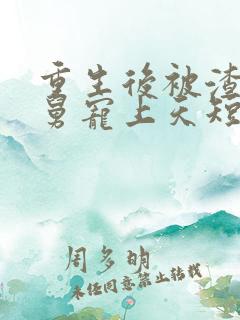 重生後被渣
舅寵上天短
周多明
未任同意禁止转载